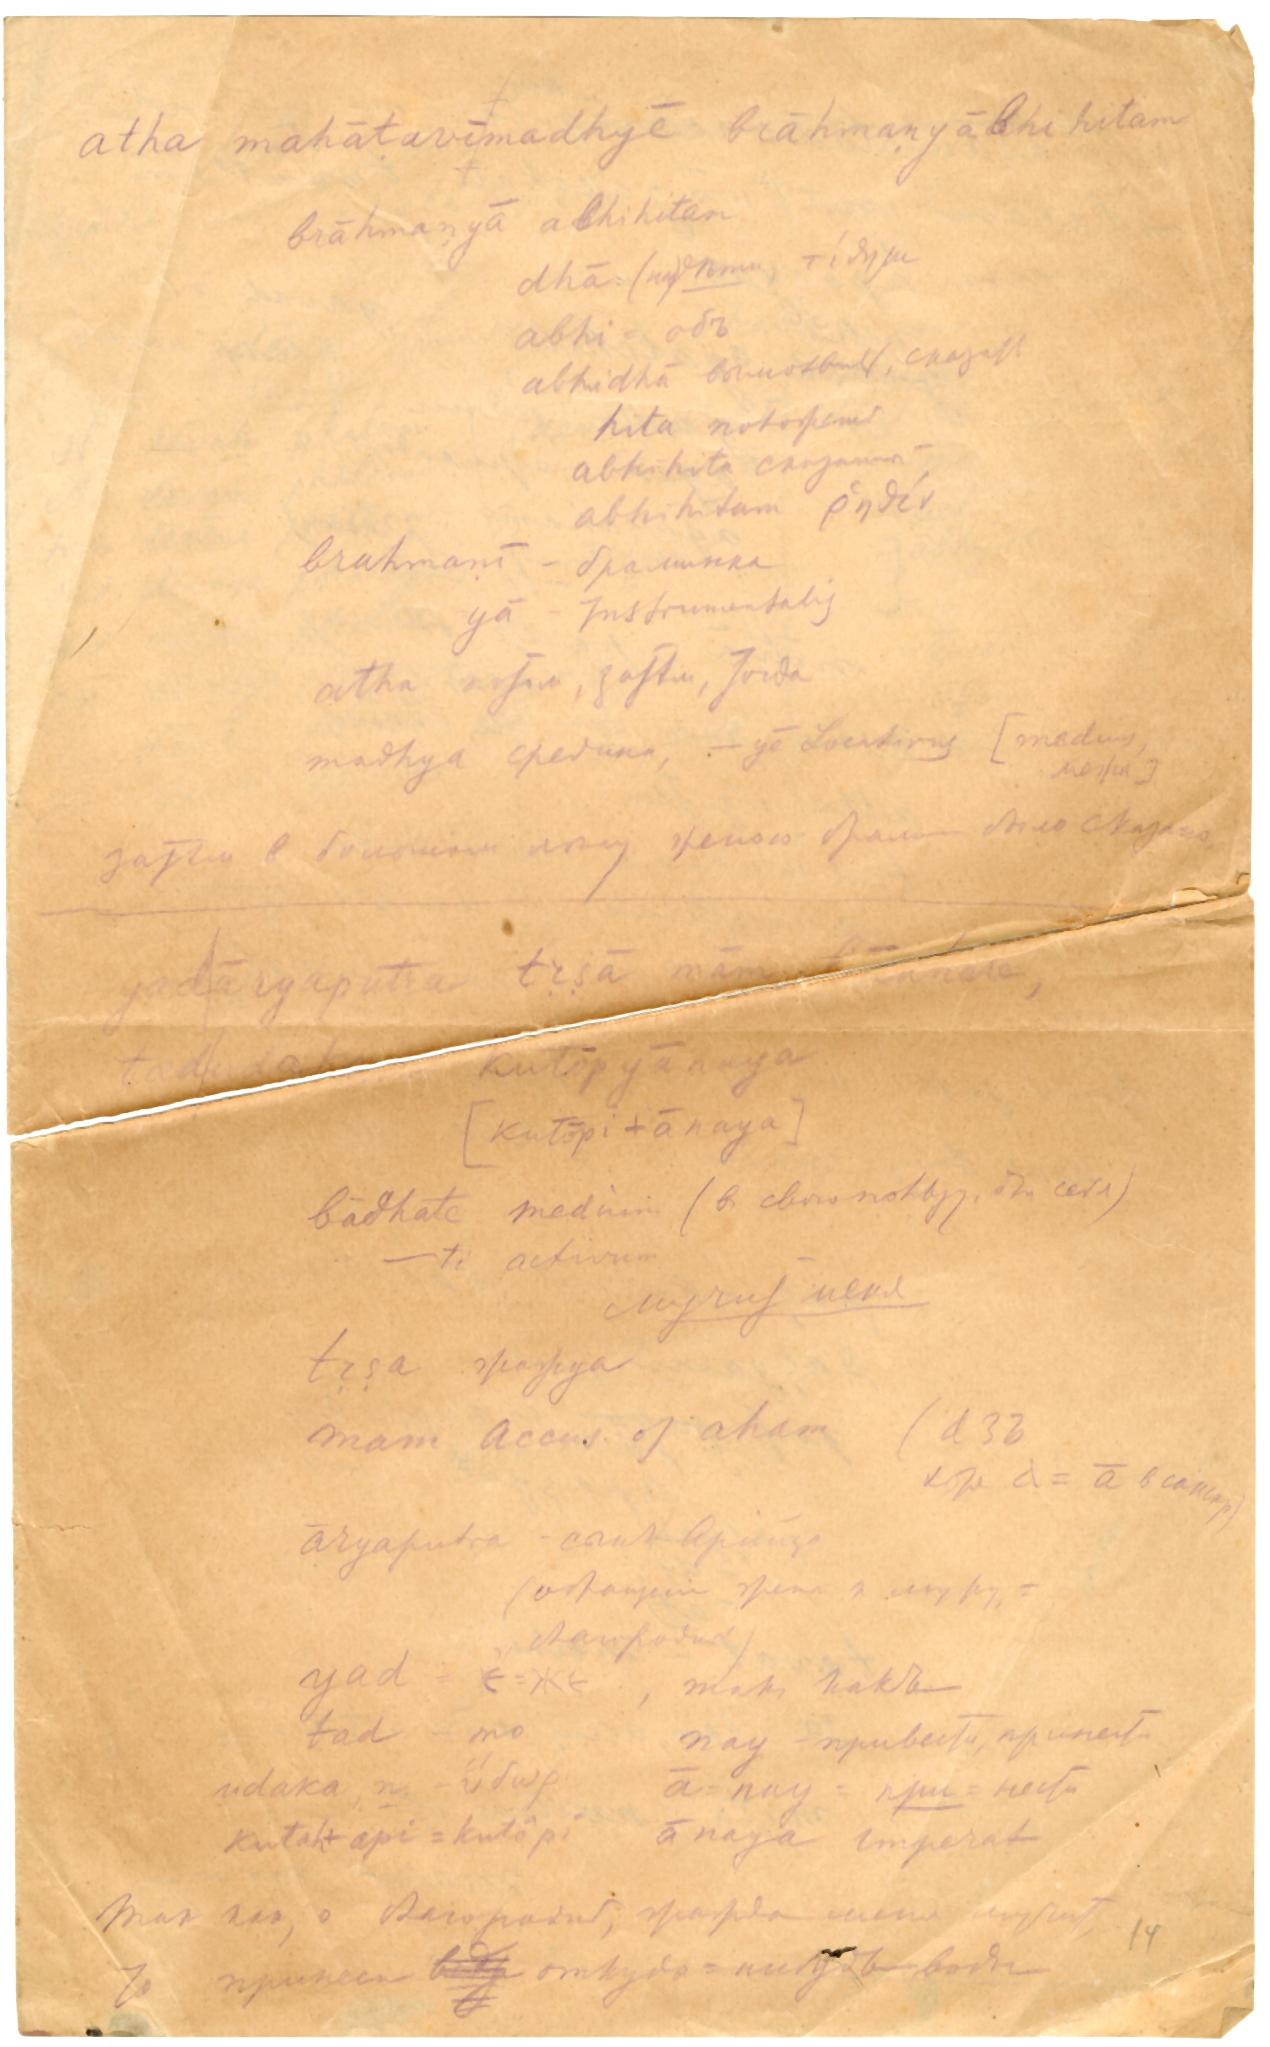 atha mahāṭavīmadhyē brāhmaṇyābhihitam
brāhmaṇyā abhihitam
dhā τίθημι
abhi = объ
abhidhā сказать
hita положенный
abhihita сказанный
abhihitam ῥηθέν
brahmaṇī – браминка
yā – Instrumentalis
atha потом, затем, тогда
madhya средина, – yē Locativus [medius,
межа]
затем в большом лесу женою брамина было сказано
yad|āryaputra tṛṣā mām
tad| kutōpyānaya
[kutōpi + ānaya]
bādhate medium (в свою для себя)
– ti activum
мучит меня
tṛṣa жажда
mam Accus. of aham (азъ
где а = ā в санскр)
āryaputra – сын Арийца
(обращение жены к мужу, =
благородный)
yad = же , так какъ
tad – то nay – привести, принести
udaka n. – ὕδωρ ā = nay = при = нести
kutaḥ + api = kutōpi ānaya imperat
Так как, о благородный, жажда меня мучит,
то принеси откуда = нибудь воды
14